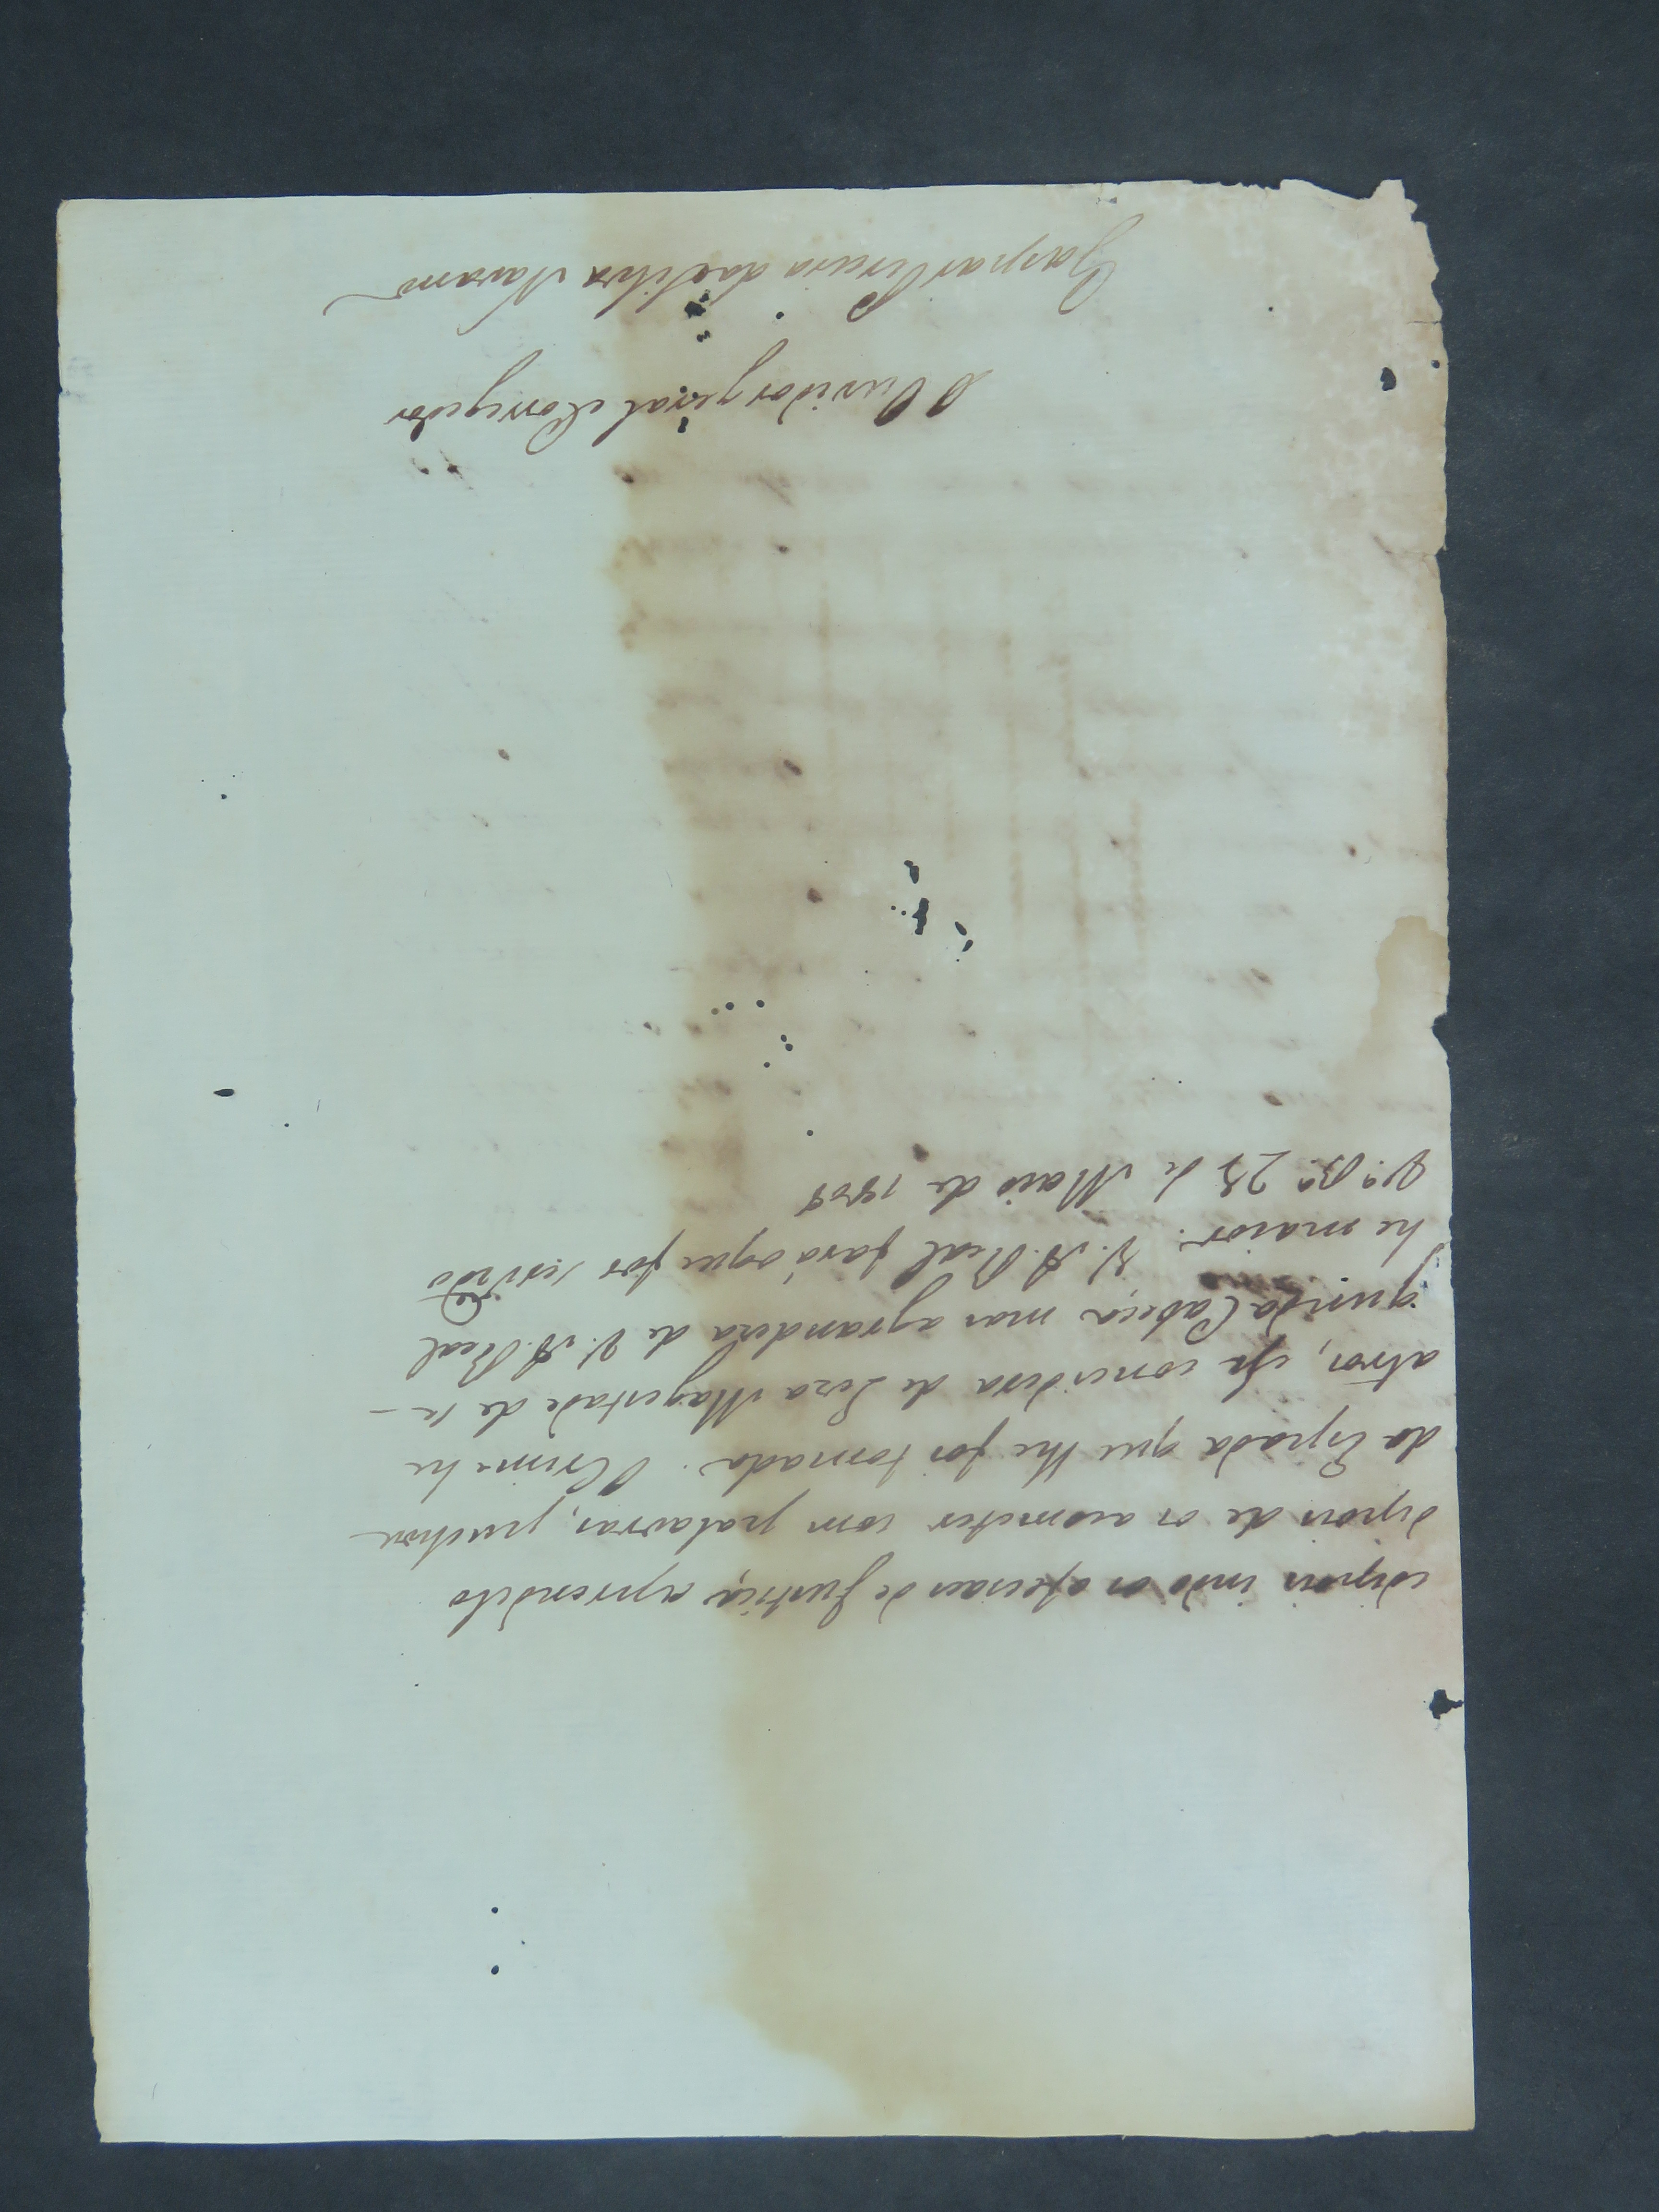 depois indo os ofeciaes de Justiça a prendelo
depois de os acometer com palavras, puchou
da Espada que lhe foi tomada. O Crime he
atros, e se concidera de Leza Magestade de se-
gunda Cabeça, mas a grandeza de V. A. Real
he maior. V. A. Real fará o que for servido
V.ª B.ª 28 de Maio de 1809
O Ouvidor geral e Corregedor
Gaspar Pereira da Silva Navarro